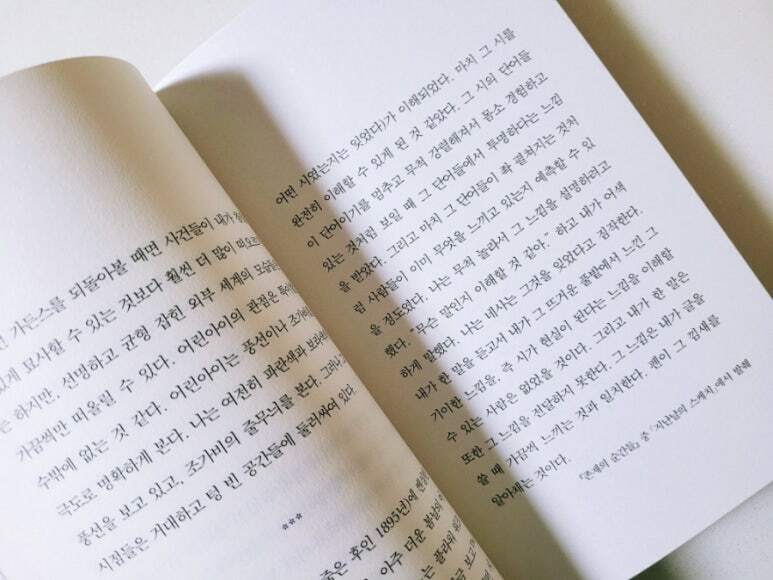 가든스를 되돌아볼 때면 사건들이
묘사할 수 있는 것보다 훨씬 더 많이
하지만, 선명하고 균형 잡힌 외부 세계의
가끔씩만 떠올릴 수 있다. 어린아이의 관점은
수밖에 없는 것 같다. 어린아이는 풍선이나
극도로 명확하게 본다. 나는 여전히 파란색과
풍선을 보고 있고, 조가비의 줄무늬를 본다.
시점들은 거대하고 텅 빈 공간들에 둘러싸여 있다.
***
죽은 후인 1895년)에
아주 더운 봄날의
는 플라워
어떤 시였는지는 잊었다)가 이해되었다. 마치 그 시를
완전히 이해할 수 있게 된 것 같았다. 그 시의 단어들
이 단어이기를 멈추고 무척 강렬해져서 몸소 경험하고
있는 것처럼 보일 때 그 단어들에서 투명하다는 느낌
을 받았다. 그리고 마치 그 단어들이 쫙 펼쳐지는 것처
럼 사람들이 이미 무엇을 느끼고 있는지 예측할 수 있
을 정도였다. 나는 무척 놀라서 그 느낌을 설명하려고
했다. "무슨 말인지 이해할 것 같아." 하고 내가 어색
하게 말했다. 나는 네사는 그것을 잊었다고 짐작한다.
내가 한 말을 듣고서 내가 그 뜨거운 풀밭에서 느낀 그
기이한 느낌을, 즉 시가 현실이 된다는 느낌을 이해할
수 있는 사람은 없었을 것이다. 그리고 내가 한 말은
또한 그 느낌을 전달하지 못한다. 그 느낌은 내가 글을
쓸 때 가끔씩 느끼는 것과 일치한다. 펜이 그 낌새를
알아채는 것이다.
『존재의 순간들』 중 「지난날의 스케치」에서 발췌